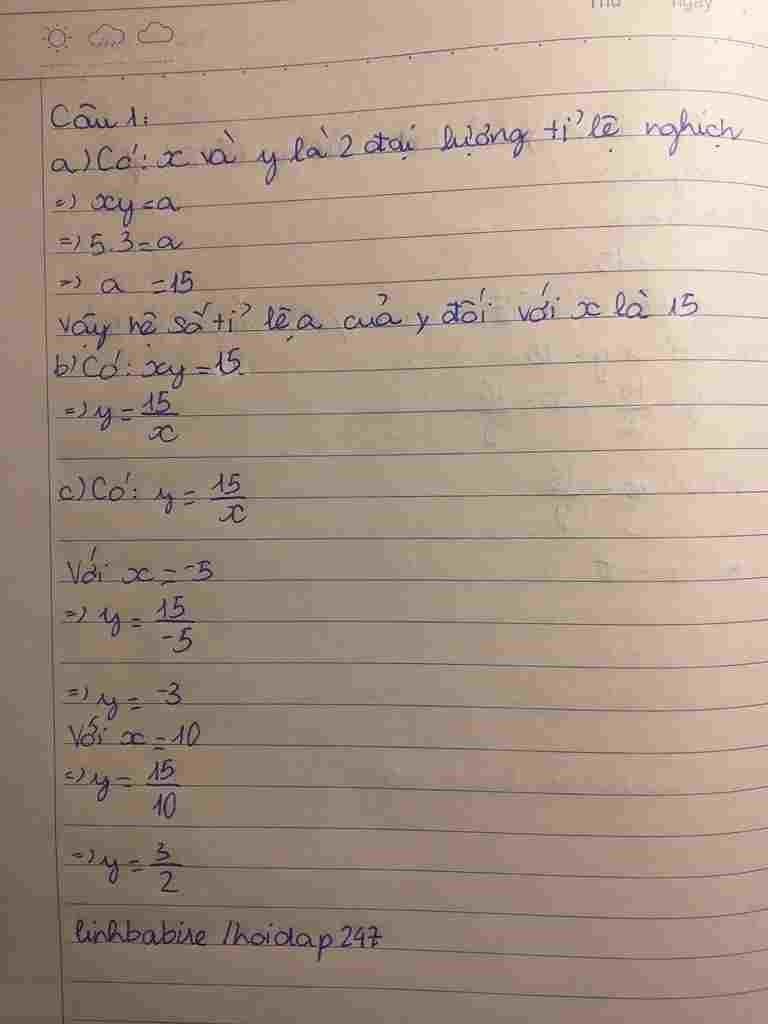 Thứ ngày
Câu 1:
a) Có: x và y là 2 đại lượng tỉ lệ nghịch
=) xy = a
=) 5.3 = a
=) a = 15
Vậy hệ số tỉ lệ a của y đối với x là 15
b) Có: xy = 15
=) y = 15/x
c) Có: y = 15/x
Với x = -5
=) y = 15/-5
=) y = -3
Với x = 10
=) y = 15/10
=) y = 3/2
linhbabire /hoidap 247